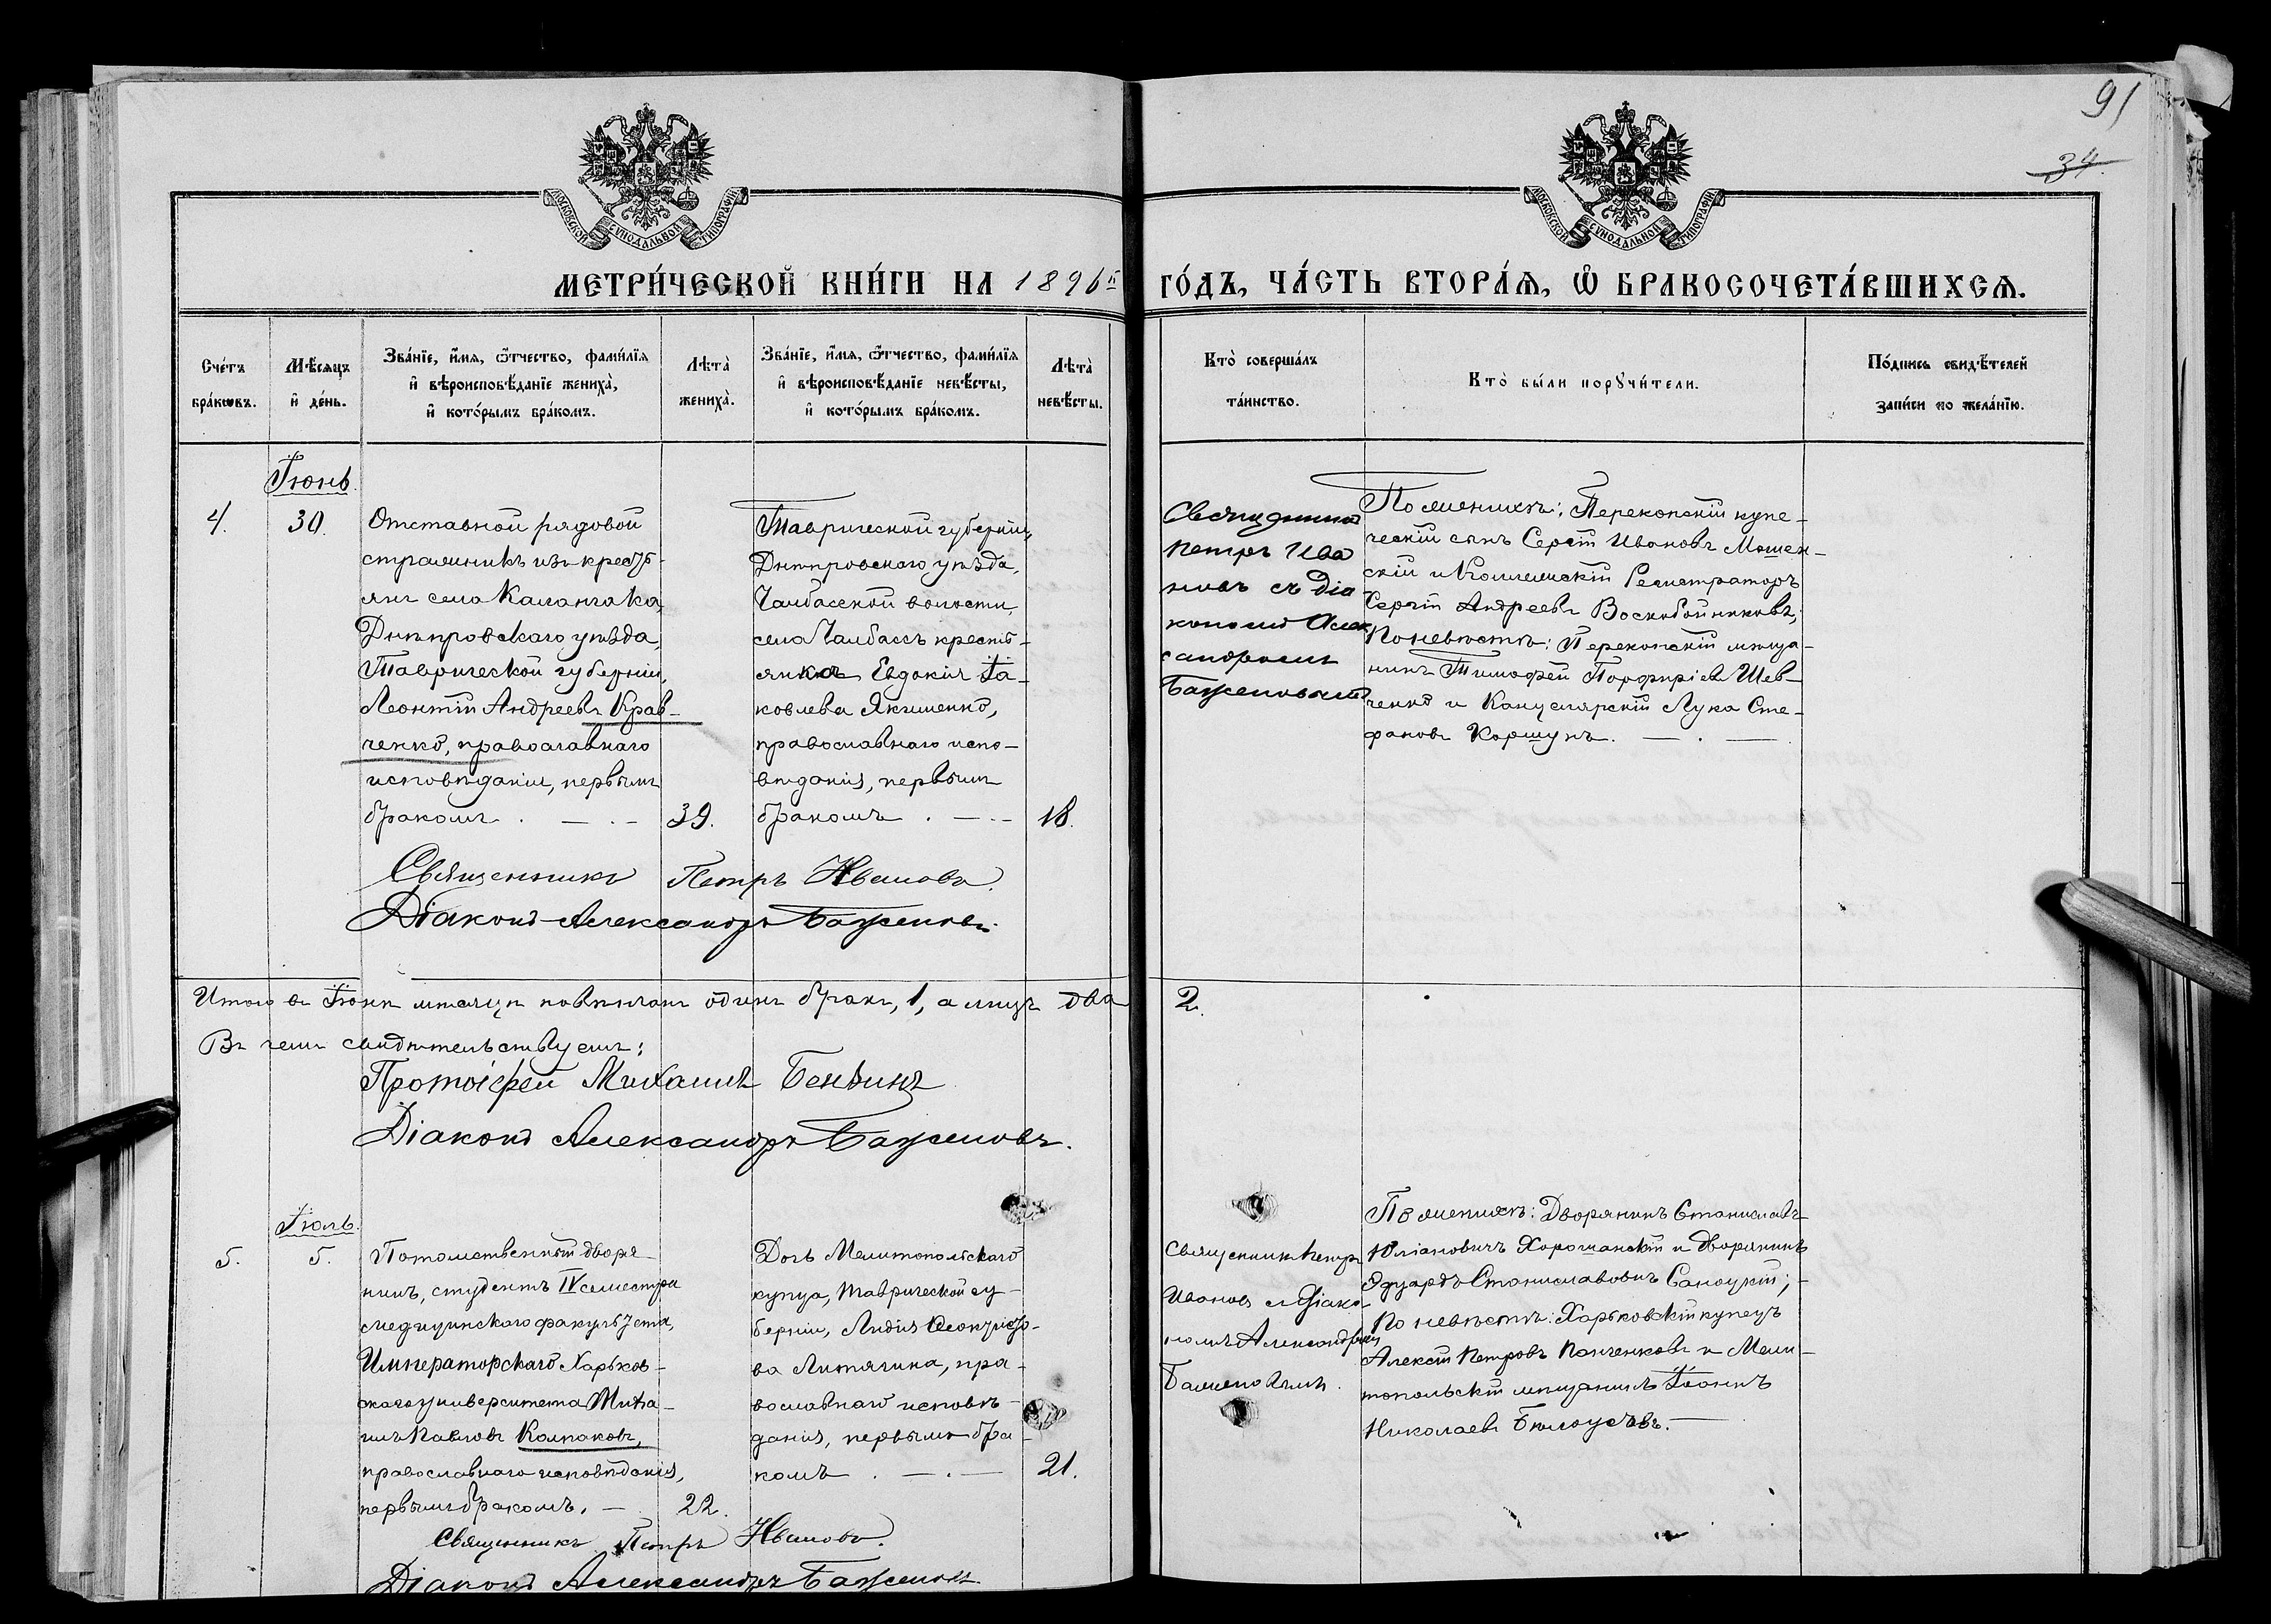 91
34.
МОСКОВСКОЙ СѴНОДАЛЬНОЙ ТИПОГРАФІИ
МОСКОВСКОЙ СѴНОДАЛЬНОЙ ТИПОГРАФІИ
МЕТРИ́ЧЕСКОЙ КНИ́ГИ НА 1896й ГО́ДЪ, ЧА́СТЬ ВТОРА́Я, Ѽ БРАКОСОЧЕТА́ВШИХСЯ.
Сче́тъ
бра́кѡвъ.
Мѣ́сяцъ
и҆ де́нь.
Зва́нїе, и҆́мя, ѻ҆́тчество, фами́лїя
и҆ вѣроисповѣ́данїе жениха̀,
и҆ кото́рымъ бра́комъ.
Лѣта̀
жениха̀.
Зва́нїе, и҆́мя, ѻ҆́тчество, фами́лїя
и҆ вѣроисповѣ́данїе невѣ́сты,
и҆ кото́рымъ бра́комъ.
Лѣта̀
невѣ́сты.
Кто̀ соверша́лъ
та́инство.
Кто̀ бы́ли порꙋчи́тели.
По́дпись свидѣ́телей
запи́си по жела́нїю.
Іюнь.
4.
30.
Отставной рядовой
стражникъ изъ кресть-
янъ села Каланчака,
Днѣпровскаго уѣзда,
Таврической губерніи,
Леонтій Андреевъ Крав-
ченко, православнаго
исповѣданія, первымъ
бракомъ.
39.
Таврической губерніи,
Днѣпровскаго уѣзда,
Чалбасской волости,
села Чалбассъ крестъ-
янка Евдокія Іа-
ковлева Якименко,
православнаго испо-
вѣданія, первымъ
бракомъ.
18.
Священникъ
Петръ Ива
новъ съ діа
кономъ Алек
сандромъ
Баженовымъ
По женихѣ: Перекопскій купе-
ческій сынъ Сергій Ивановъ Мошен-
скій и Коллежскій Регистраторъ
Сергій Андреевъ Воскобойниковъ;
По невѣстѣ: Перекопскій мѣща-
нинъ Тимофей Порфиріевъ Шев-
ченко и Канцелярскій Лука Сте-
фановъ Коршунъ.
Священникъ Петръ Ивановъ.
Діаконъ Александръ Баженовъ.
Итого въ Іюнѣ мѣсяцѣ повѣнчанъ одинъ бракъ, 1, а лицъ два 2.
Въ чемъ свидѣтельствуемъ:
Протоіерей Михаилъ
Діаконъ Александръ Баженовъ.
Іюль.
5.
5.
Потомственный дворя-
нинъ, студентъ IV семестра
медицинскаго факультета,
Императорскаго Харьков-
скаго университета Миха-
илъ Павловъ Колпаковъ,
православнаго исповѣданія,
первымъ бракомъ.
22.
Дочь Мелитопольскаго
купца, Таврической гу-
берніи, Лидія Ѳеоктисто-
ва Литягина, пра-
вославнаго исповѣ-
данія, первымъ бра-
комъ
21.
Священникъ Петръ
Ивановъ съ Діако-
номъ Александромъ
Баженовымъ.
По женихѣ: Дворянинъ Станиславъ
Юліановичъ Хорошанскій и дворянинъ
Эдуардъ Станиславовичъ Саноцкій;
По невѣстѣ: Харьковскій купецъ
Алексѣй Петровъ Панченковъ и Мели-
топольскій мѣщанинъ Іоаннъ
Николаевъ Бѣлоусовъ.
Священникъ Петръ Ивановъ.
Діаконъ Александръ Баженовъ.